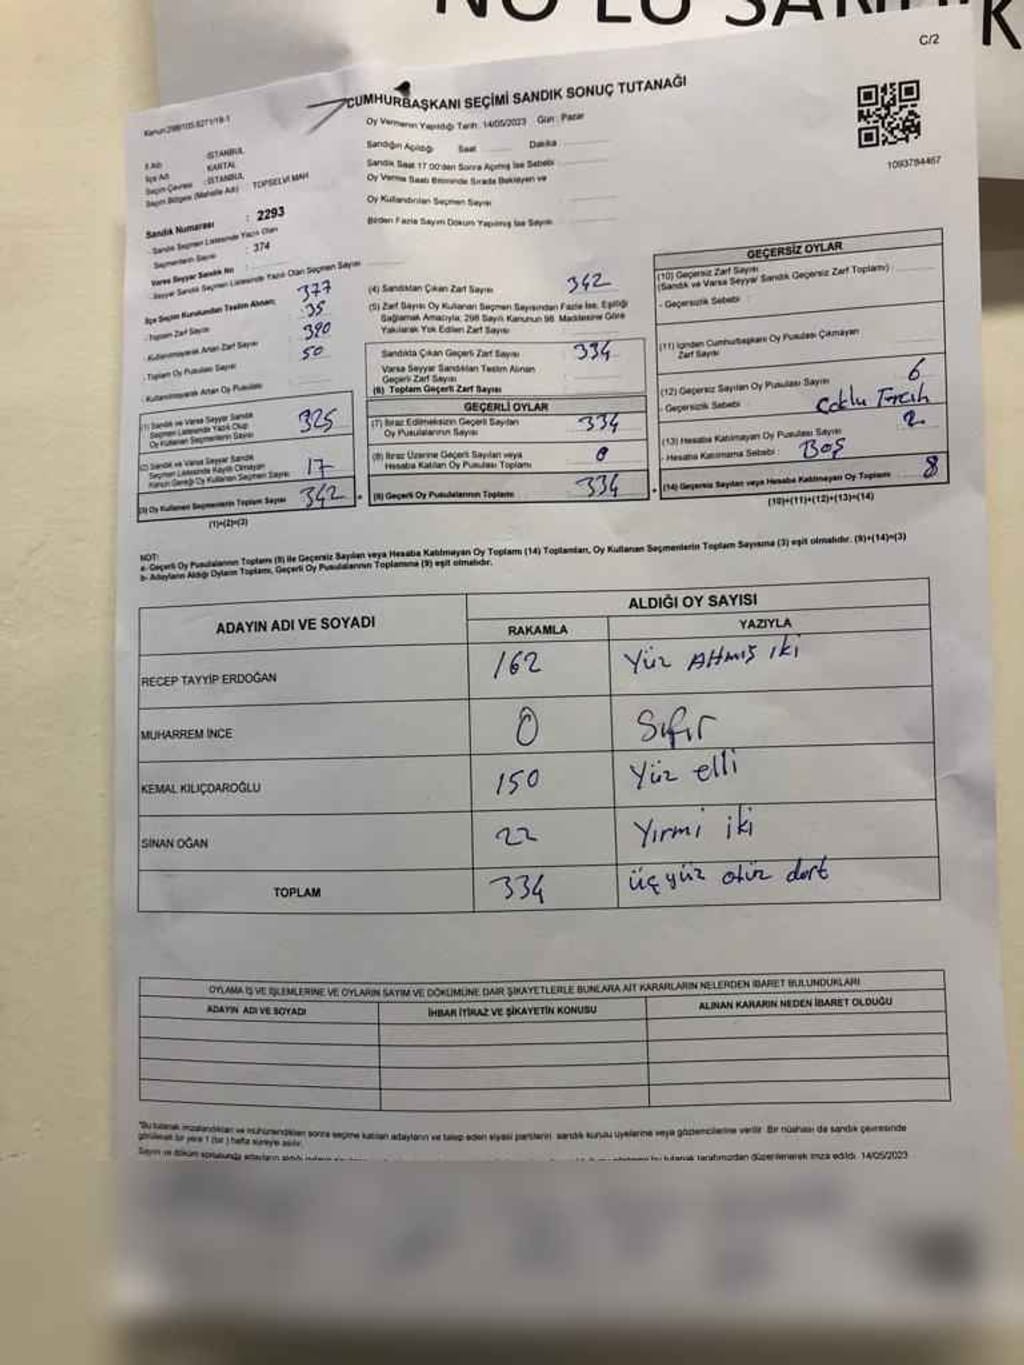 C/2
CUMHURBAŞKANI SEÇİMİ SANDIK SONUÇ TUTANAĞI
Oy Vermenin Yapıldığı Tarih : 14/05/2023 Gün : Pazar
Sandığın Açıldığı Saat Dakika
Sandık Saat 17:00'den Sonra Açılmış İse Sebebi
Oy Verme Saati Bitiminde Sırada Bekleyen ve
Oy Kullandırılan Seçmen Sayısı
Birden Fazla Sayım Döküm Yapılmış İse Sayısı
1093784467
İl Adı : İSTANBUL
İlçe Adı KARTAL
Seçim Çevresi : İSTANBUL
Seçim Bölgesi (Mahalle Adı) : TOPSELVİ MAH
Sandık Numarası : 2293
Sandık Seçmen Listesinde Yazılı Olan
Seçmenlerin Sayısı : 374
Varsa Seyyar Sandık No
Seyyar Sandık Seçmen Listesinde Yazılı Olan Seçmen Sayısı
İlçe Seçim Kurulundan Teslim Alınan;
Toplam Zarf Sayısı 377
Kullanılmayarak Artan Zarf Sayısı 35
Toplam Oy Pusulası Sayısı 390
Kullanılmayarak Artan Oy Pusulası 50
(1) Sandık ve Varsa Seyyar Sandık
Seçmen Listesinde Yazılı Olup
Oy Kullanan Seçmenlerin Sayısı 325
(2) Sandık ve Varsa Seyyar Sandık
Seçmen Listesinde Kayıtlı Olmayan
Kanun Gereği Oy Kullanan Seçmen Sayısı 17
(3) Oy Kullanan Seçmenlerin Toplam Sayısı 342
(1)+(2)=(3)
(4) Sandıktan Çıkan Zarf Sayısı 342
(5) Zarf Sayısı Oy Kullanan Seçmen Sayısından Fazla İse, Eşitliği
Sağlamak Amacıyla; 298 Sayılı Kanunun 98. Maddesine Göre
Yakılarak Yok Edilen Zarf Sayısı
Sandıkta Çıkan Geçerli Zarf Sayısı 334
Varsa Seyyar Sandıktan Teslim Alınan
Geçerli Zarf Sayısı
(6) Toplam Geçerli Zarf Sayısı
GEÇERLİ OYLAR
(7) İtiraz Edilmeksizin Geçerli Sayılan
Oy Pusulalarının Sayısı 334
(8) İtiraz Üzerine Geçerli Sayılan veya
Hesaba Katılan Oy Pusulası Toplamı 0
(9) Geçerli Oy Pusulalarının Toplamı 334
GEÇERSİZ OYLAR
(10) Geçersiz Zarf Sayısı
(Sandık ve Varsa Seyyar Sandık Geçersiz Zarf Toplamı) :
- Geçersizlik Sebebi :
(11) İçinden Cumhurbaşkanı Oy Pusulası Çıkmayan
Zarf Sayısı
(12) Geçersiz Sayılan Oy Pusulası Sayısı 6
- Geçersizlik Sebebi : Çoklu Tercih
(13) Hesaba Katılmayan Oy Pusulası Sayısı 2
- Hesaba Katılmama Sebebi : BOŞ
(14) Geçersiz Sayılan veya Hesaba Katılmayan Oy Toplamı 8
(10)+(11)+(12)+(13)=(14)
NOT:
a- Geçerli Oy Pusulalarının Toplamı (9) ile Geçersiz Sayılan veya Hesaba Katılmayan Oy Toplamı (14) Toplamları, Oy Kullanan Seçmenlerin Toplam Sayısına (3) eşit olmalıdır. (9)+(14)=(3)
b- Adayların Aldığı Oyların Toplamı, Geçerli Oy Pusulalarının Toplamına (9) eşit olmalıdır.
ADAYIN ADI VE SOYADI
ALDIĞI OY SAYISI
RAKAMLA YAZIYLA
RECEP TAYYİP ERDOĞAN 162 Yüz Altmış iki
MUHARREM İNCE 0 Sıfır
KEMAL KILIÇDAROĞLU 150 Yüz elli
SİNAN OĞAN 22 Yırmi iki
TOPLAM 334 üçyüz otuz dört
OYLAMA İŞ VE İŞLEMLERİNE VE OYLARIN SAYIM VE DÖKÜMÜNE DAİR ŞİKAYETLERLE BUNLARA AİT KARARLARIN NELERDEN İBARET BULUNDUKLARI
ADAYIN ADI VE SOYADI İHBAR İTİRAZ VE ŞİKAYETİN KONUSU ALINAN KARARIN NEDEN İBARET OLDUĞU
"Bu tutanak imzalandıktan ve mühürlendikten sonra seçime katılan adayların ve talep eden siyasi partilerin sandık kurulu üyelerine veya gözlemcilerine verilir. Bir nüshası da sandık çevresinde
görülecek bir yere 1 (bir) hafta süreyle asılır.
bu tutanak tarafımızdan düzenlenerek imza edildi. 14/05/2023